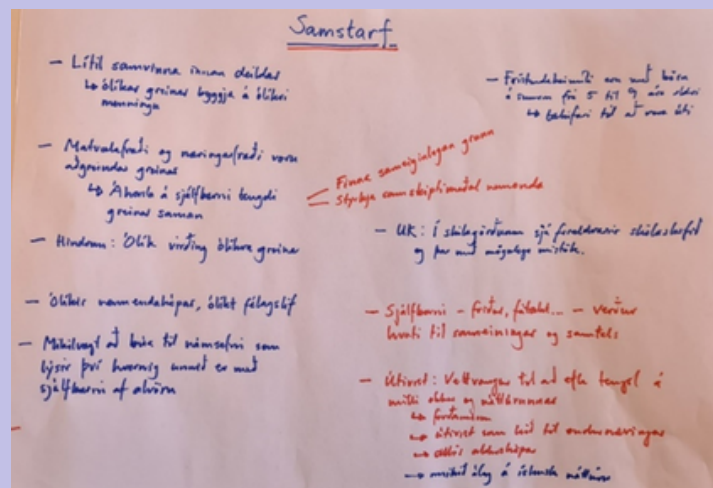 Samstarf
– Lítil samvinna innan deildar
↳ ólíkar greinar byggja á ólíkri
menningu
– Matvælafræði og næringarfræði voru
aðgreindar greinar
↳ Áhersla á sjálfbærni tengdi
greinar saman
– Hindrun: Ólík virðing ólíkra greina
– Ólíkir nemendahópar, ólíkt félagslíf
– Mikilvægt að búa til námsefni sem
lýsir því hvernig unnið er með
sjálfbærni af alvöru
Finna sameiginlegan grunn
Styrkja samskipti nemenda
– Frístundaheimili eru með börn
á frá 5 til 9 ára aldri
↳ tækifæri til að vera úti
– UK: Í skólagörðunum sjá foreldrarnir skólastarfið
og þar með möguleg mistök.
– Sjálfbærni – friður, fátækt... – verður
hvati til sameiningar og samtals
– Útivist: Vettvangur til að efla tengsl á
milli okkar og náttúrunnar
↳ útivist sem leið til endurnæringar
→ mikið álag á íslenska náttúru